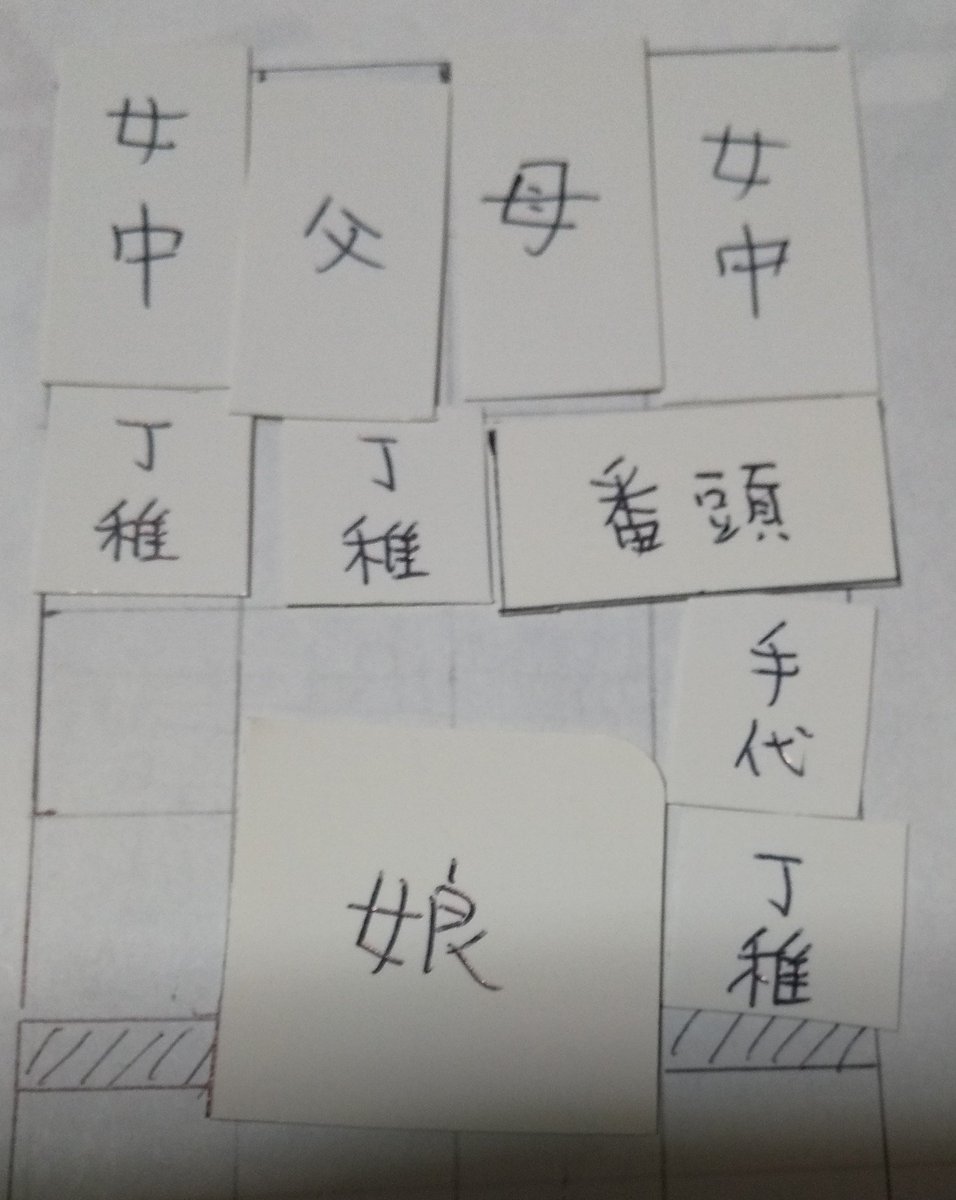 女中
父
母
女中
丁稚
丁稚
番頭
手代
娘
丁稚